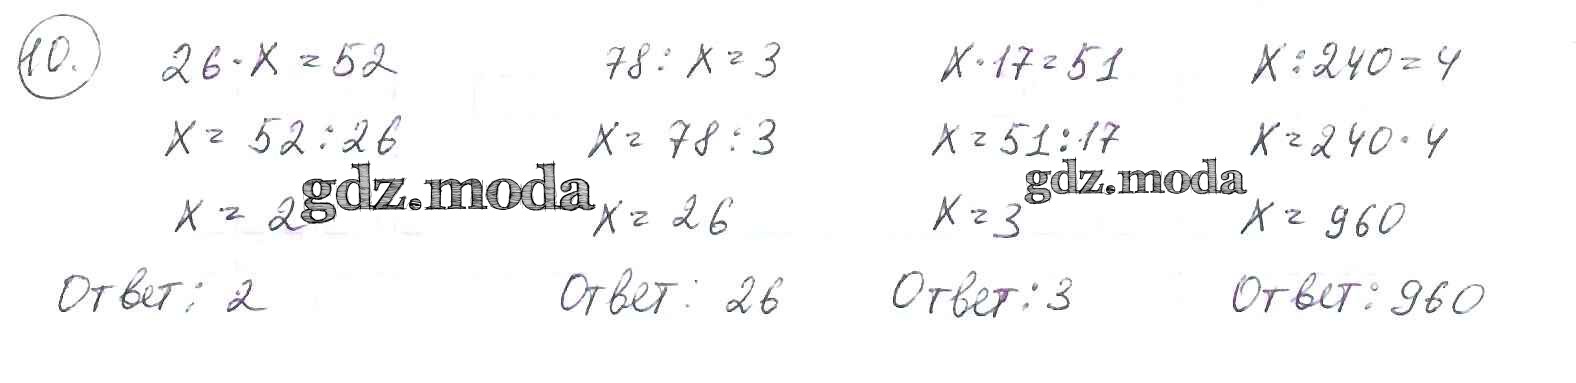 10. 26 · x = 52 78 : x = 3 x · 17 = 51 x : 240 = 4
x = 52 : 26 x = 78 : 3 x = 51 : 17 x = 240 · 4
gdz.moda gdz.moda
x = 2 x = 26 x = 3 x = 960
Ответ: 2 Ответ: 26 Ответ: 3 Ответ: 960